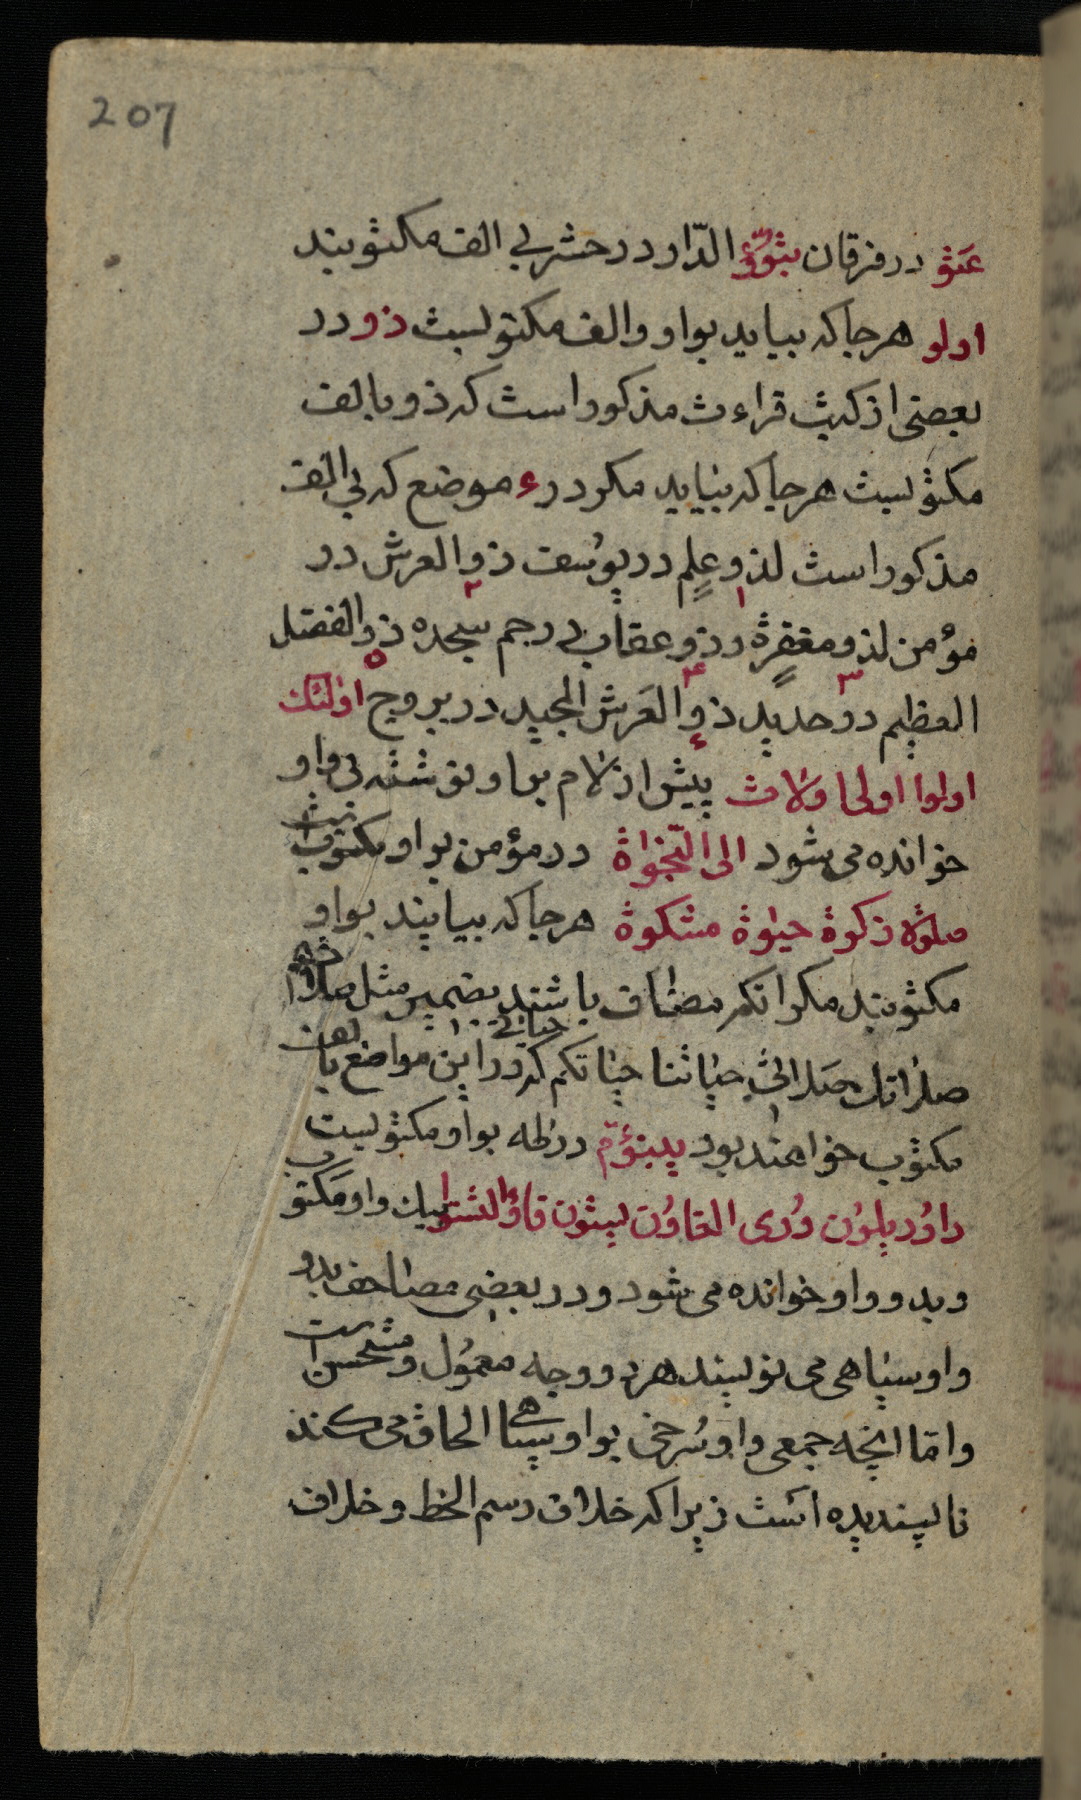 207
عتو در فرقان تبوّؤ الدّار در حشر بی الف مکتوبند
اولو هرجا که بیاید بواو والف مکتوبست ذو در
بعضی از کتب قراءت مذکور است که ذو بالف
مکتوبست هرجا که بیاید مکر در ۶ موضع که بی الف
مذکور است لذو علم در یوسف ۱ ذو العرش در ۲
مؤمن لذو مغفرة ۳ وذو عقاب ۴ در حم سجده ذو الفضل ۵
العظیم در حدید ذو العرش المجید ۶ در بروج اولئک
اولوا اولی اولات پیش از لام بواو نوشته بی واو
خوانده می شود الی النّجوٰة در مؤمن بواو مکتوبست
صلوٰة زکوٰة حیوٰة مشکوٰة هرجا که بیایند بواو
مکتوبند مکر انکه مضاف باشند بضمیر مثل صلاتهم
صلاتک صلاتی حیاتنا حیاتکم حیاتی که در این مواضع بالف
مکتوب خواهند بود یبنؤمّ در طه بواو مکتوبست
داوٗد یلوٗن وٗری الغاوٗن لیستوٗن فاوٗا لتستوٗا بیک واو مکتوب
وبدو واو خوانده می شود ودر بعضی مصاحف بدو
واو سیاهی می نویسند هر دو وجه معمول ومستحسن است
وامّا انچه جمعی واو سرخی بواو سیاهی الحاق می کنند
ناپسندیده است زیرا که خلاف رسم الخط وخلاف